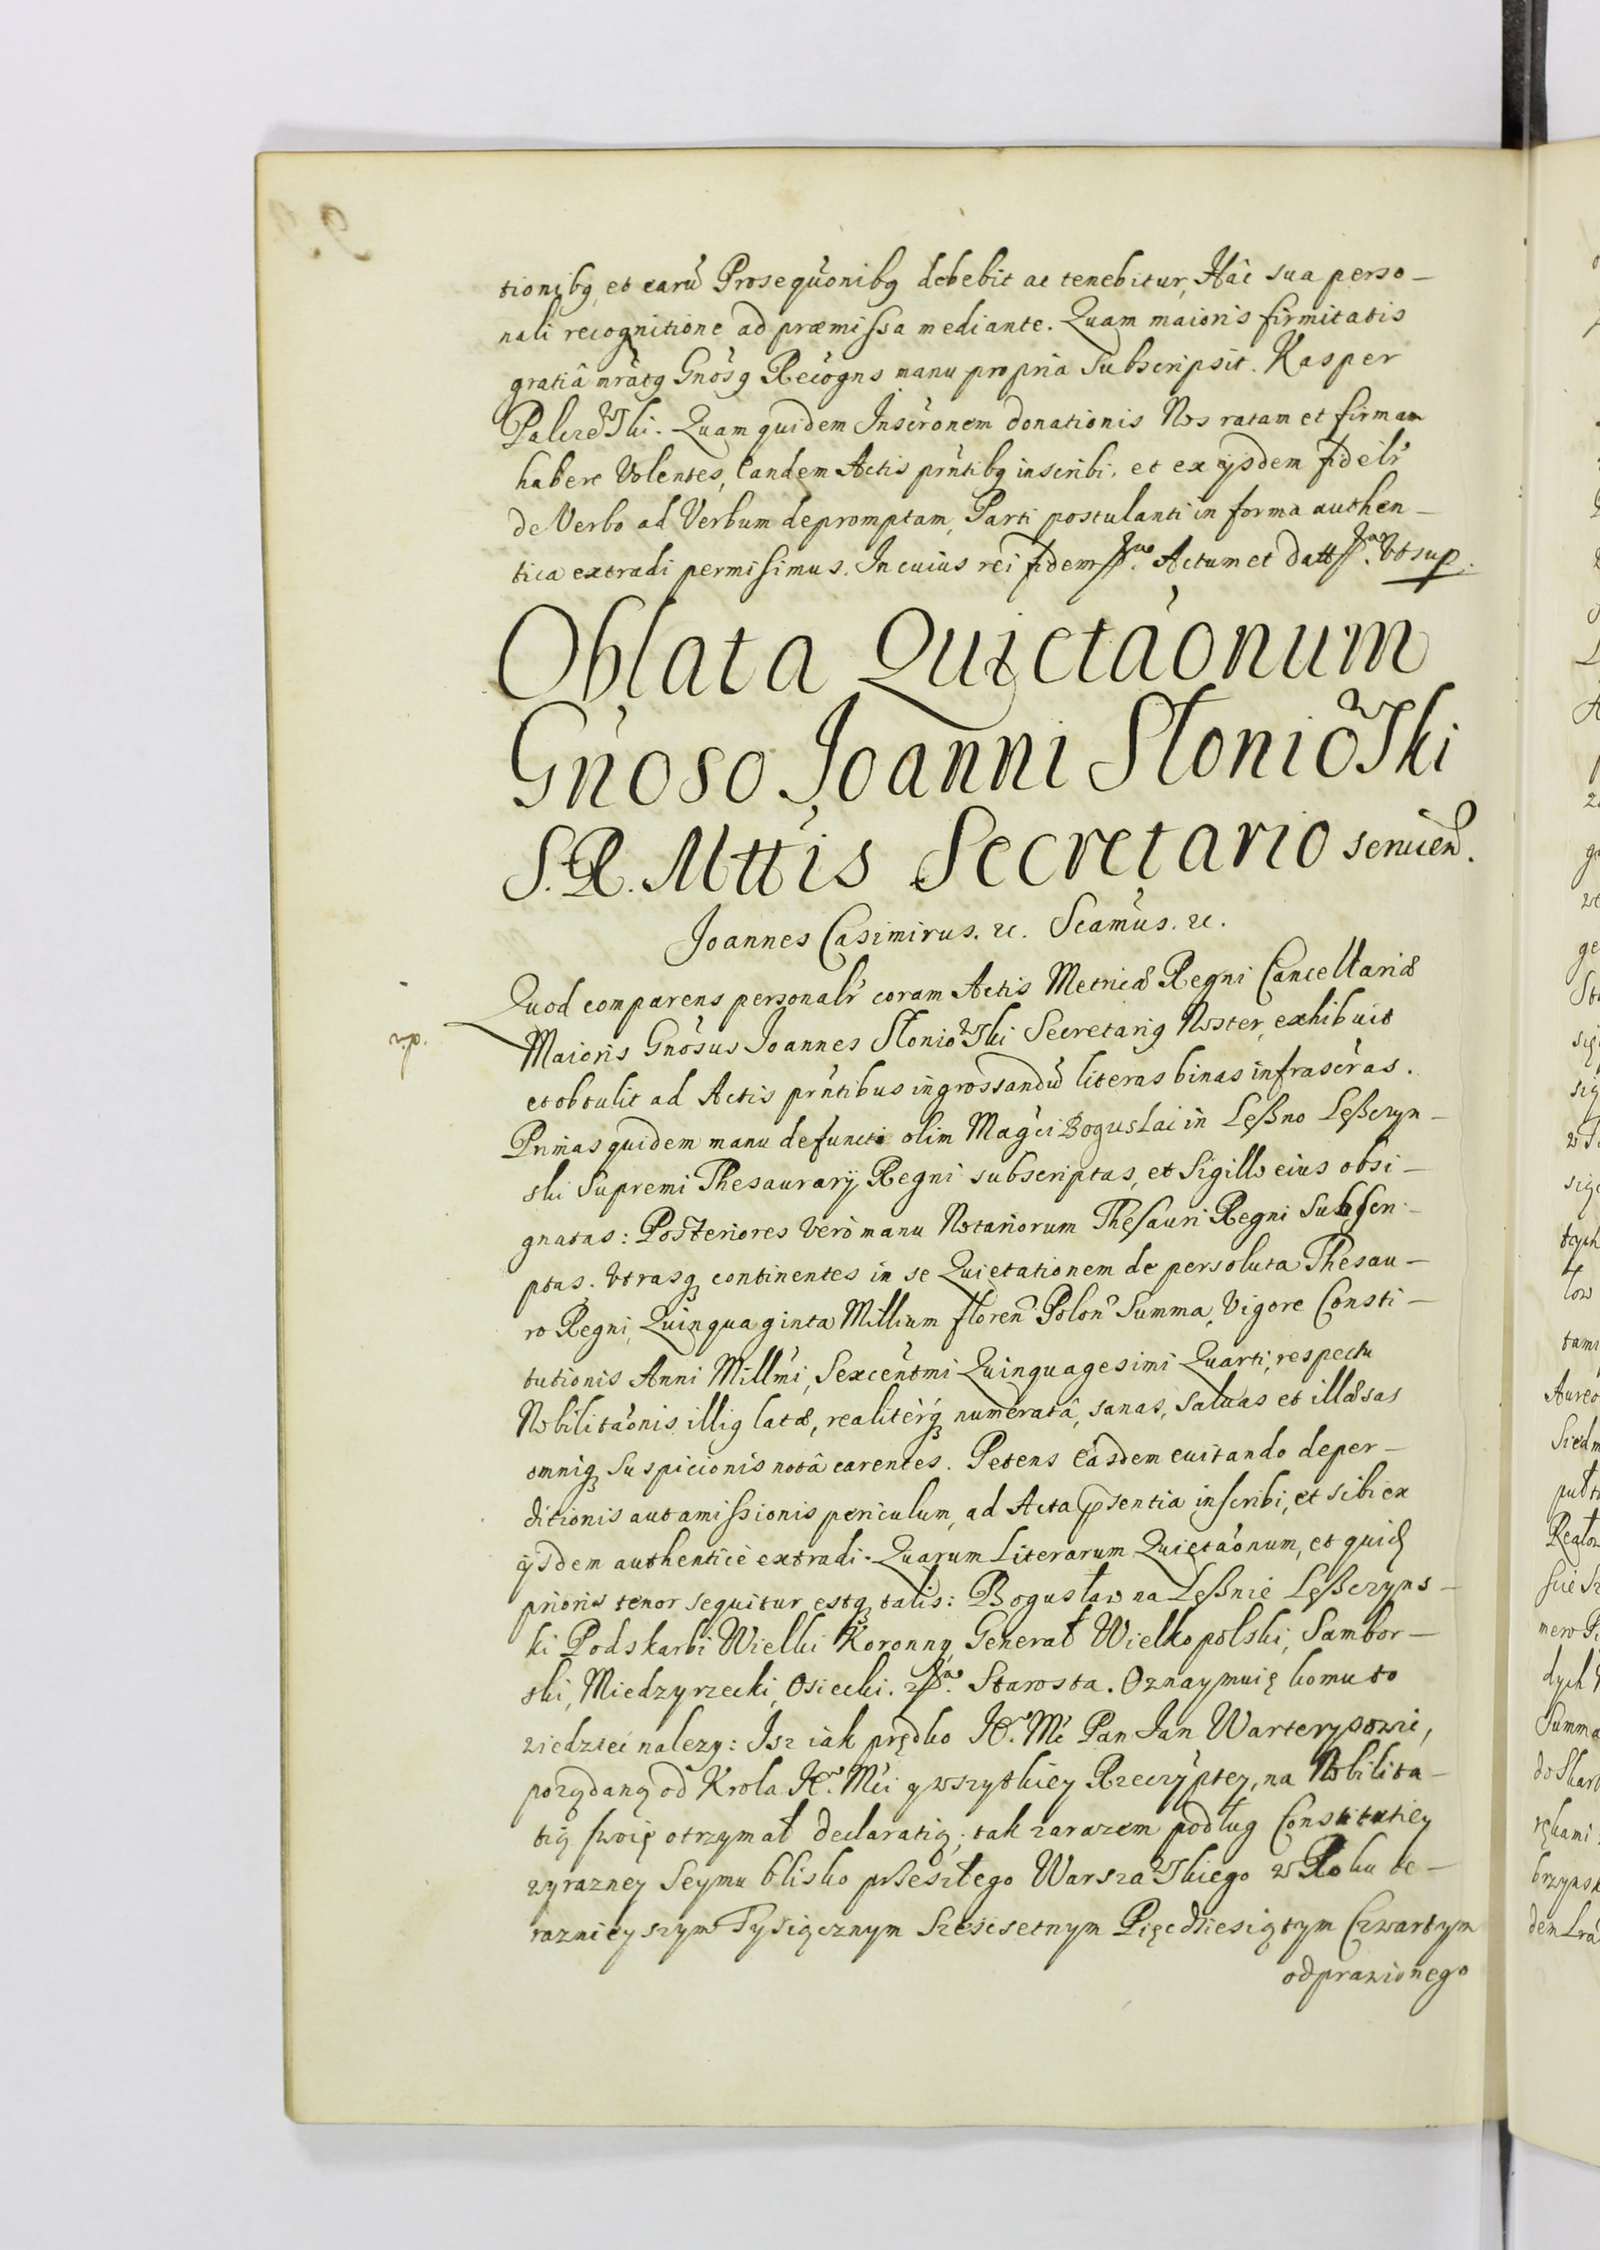 tionibg et earũ Prosequõnibg debebit ac tenebitur, Hâc sua perso-
nali recognitione ad præmissa mediante. Quam maioris firmitatis
gratiâ mrãtg Gnõsg Recogns manu propria Subscripsit. Kasper
Palczewski. Quam quidem Inscrõnem donationis Nos ratam et firmam
habere Volentes, Eandem Actis prñtibg inscribi, et ex ijsdem fidelr
de Verbo ad Verbum depromptam, Parti postulanti in forma authen-
tica extradi permisimus. In cuius rei fidem Actum et datt Vt sup.
Oblata Quietãonum
Gnoso Joanni Słoniowski
S. R. Mttis Secretario servien.
Joannes Casimirus. &c. Scamus. &c.
Quod comparens personalr coram Actis Metricæ Regni Cancellariæ
Maioris Gnõsus Joannes Słoniowski Secretarig Noster, exhibuit
et obtulit ad Actis prñtibus ingrossandũ literas binas infrascras.
Primas quidem manu defuncti olim Magci Boguslai in Leßno Leßczyn-
ski Supremi Thesaurarij Regni subscriptas, et Sigillo eius obsi-
gnatas: Posteriores vero manu Notariorum Thesauri Regni Subscri-
ptas. Vtrasq continentes in se Quietationem de persoluta Thesau-
ro Regni, Quinquaginta Millium floren Polon Summa, Vigore Consti-
tutionis Anni Millmi, Sexcentmi Quinquagesimi Quarti, respectu
Nobilitãonis illig latæ, realiterq numeratâ, sanas, saluas et illæsas
omniq Suspicionis notâ carentes. Petens Easdem euitando deper-
ditionis aut amissionis periculum, ad Acta psentia inscribi, et sibi ex
ijsdem authenticè extradi. Quarum Literarum Quietãonum, et quid
prioris tenor sequitur estq talis: Bogusław na Leßnie Leßczyns-
ki Podskarbi Wielki Koronny, Generał Wielkopolski, Sambor-
ski, Miedzyrzecki, Osiecki. Starosta. Oznaymuię komu to
wiedziec nalezy: Isz iak prędko Je. Mc Pan Jan Warterysowic,
poządaną od Krola Je. Mci y wszytkiey Rzeczyptey, na Nobilita-
tią swoię otrzymał declaratią, tak zarazem podług Constitutiey
wyrazney Seymu blisko przeszłego Warszawskiego w Roku te-
raznieyszym Tysiącznym Szescsetnym Pięcdziesiątym Czwartym
odprawionego